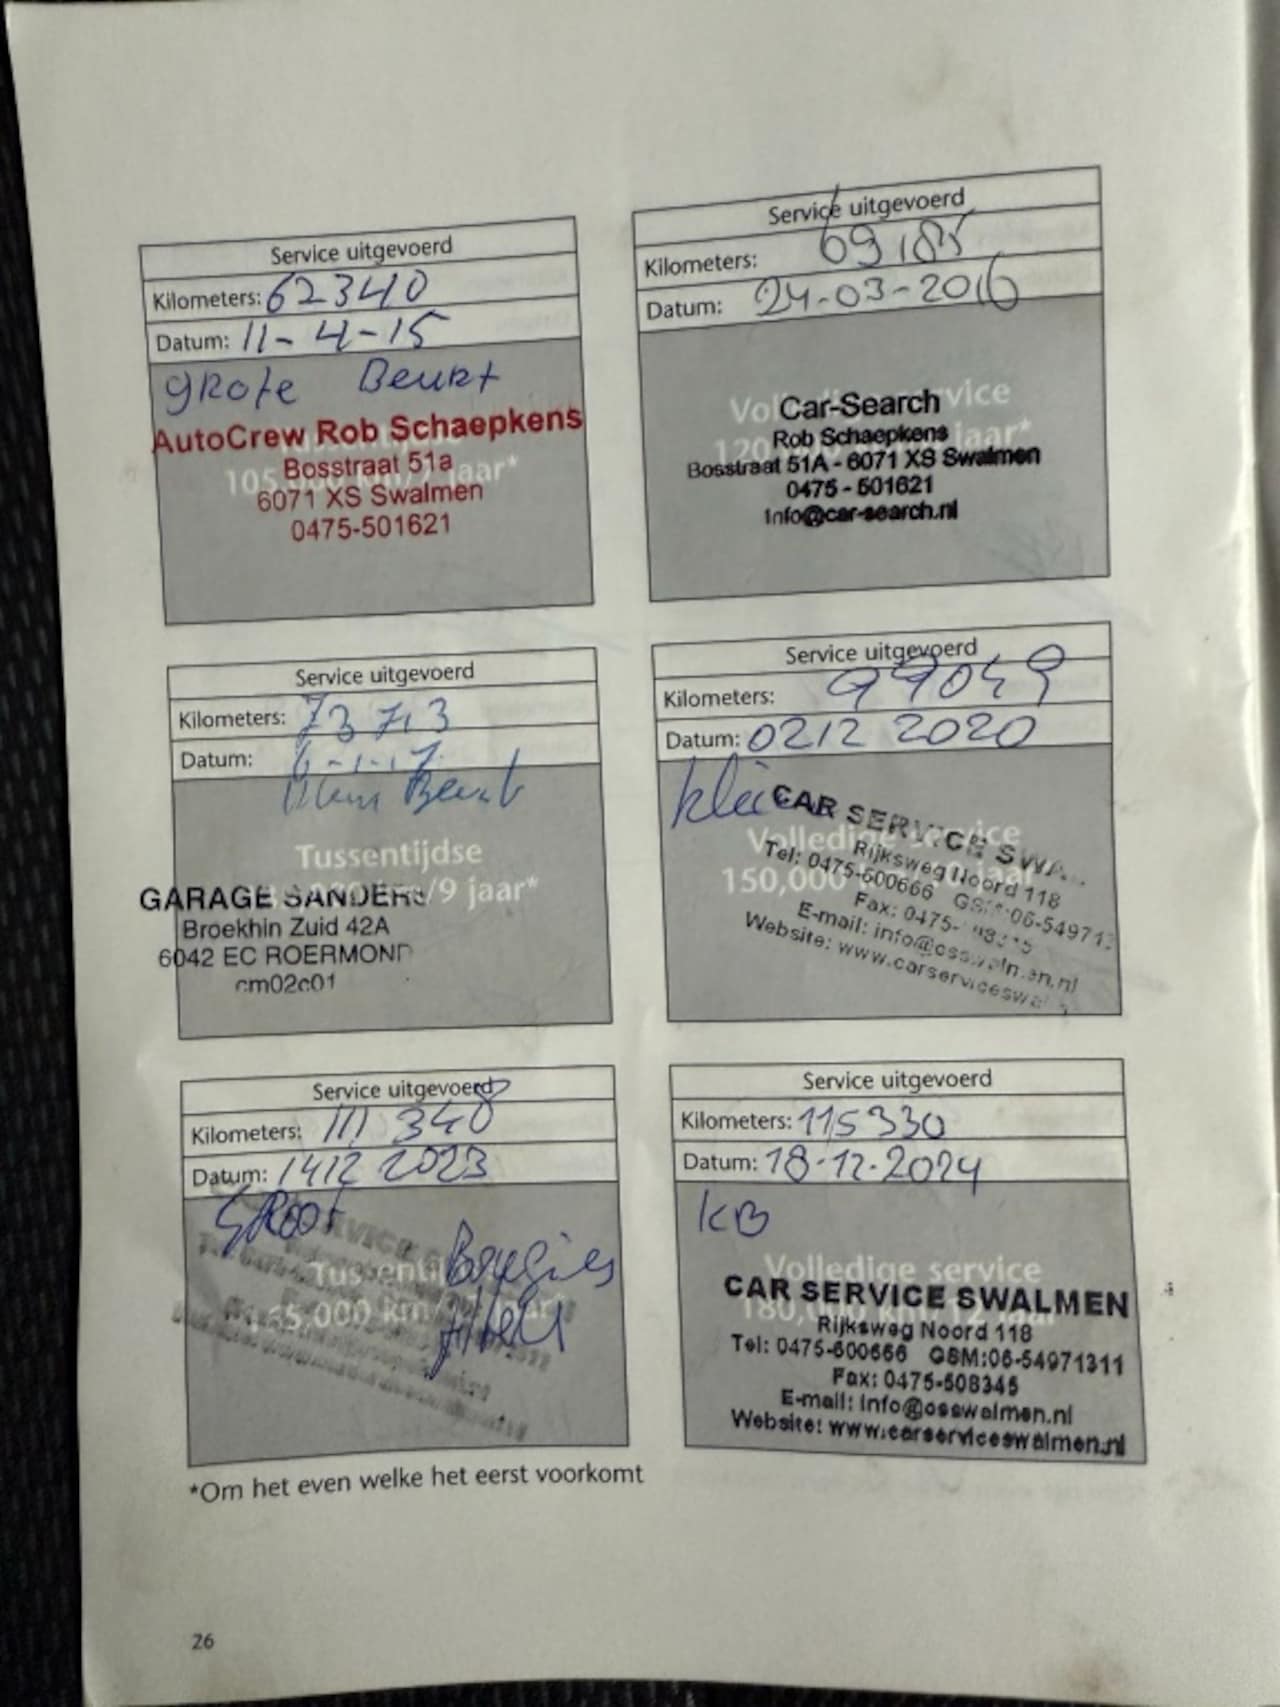 Service uitgevoerd
Kilometers: 62340
Datum: 11-4-15
grote Beurt
AutoCrew Rob Schaepkens
Bosstraat 51a
105 jaar*
6071 XS Swalmen
0475-501621
Service uitgevoerd
Kilometers: 69185
Datum: 24-03-2016
Car-Search
Rob Schaepkens
Bosstraat 51A - 6071 XS Swalmen
0475 - 501621
Info@car-search.nl
Service uitgevoerd
Kilometers: 73713
Datum: -1-17
Beurt
Tussentijdse
km/9 jaar*
GARAGE SANDERS
Broekhin Zuid 42A
6042 EC ROERMOND
cm02c01
Service uitgevoerd
Kilometers: 99049
Datum: 0212 2020
CAR SERVICE SWA
Volledige service
150,000
Rijksweg Noord 118
Tel: 0475-600666 GSM:06-549713
Fax: 0475-
E-mail: info@osswalmen.nl
Website: www.carserviceswal
Service uitgevoerd
Kilometers: 111 348
Datum: 1412 2023
GROOT
Bougies
filter
165,000 km/
Service uitgevoerd
Kilometers: 115330
Datum: 18-12-2024
KB
Volledige service
CAR SERVICE SWALMEN
Rijksweg Noord 118
Tel: 0475-600666 GSM:06-54971311
Fax: 0475-508345
E-mail: info@osswalmen.nl
Website: www.carserviceswalmen.nl
*Om het even welke het eerst voorkomt
26